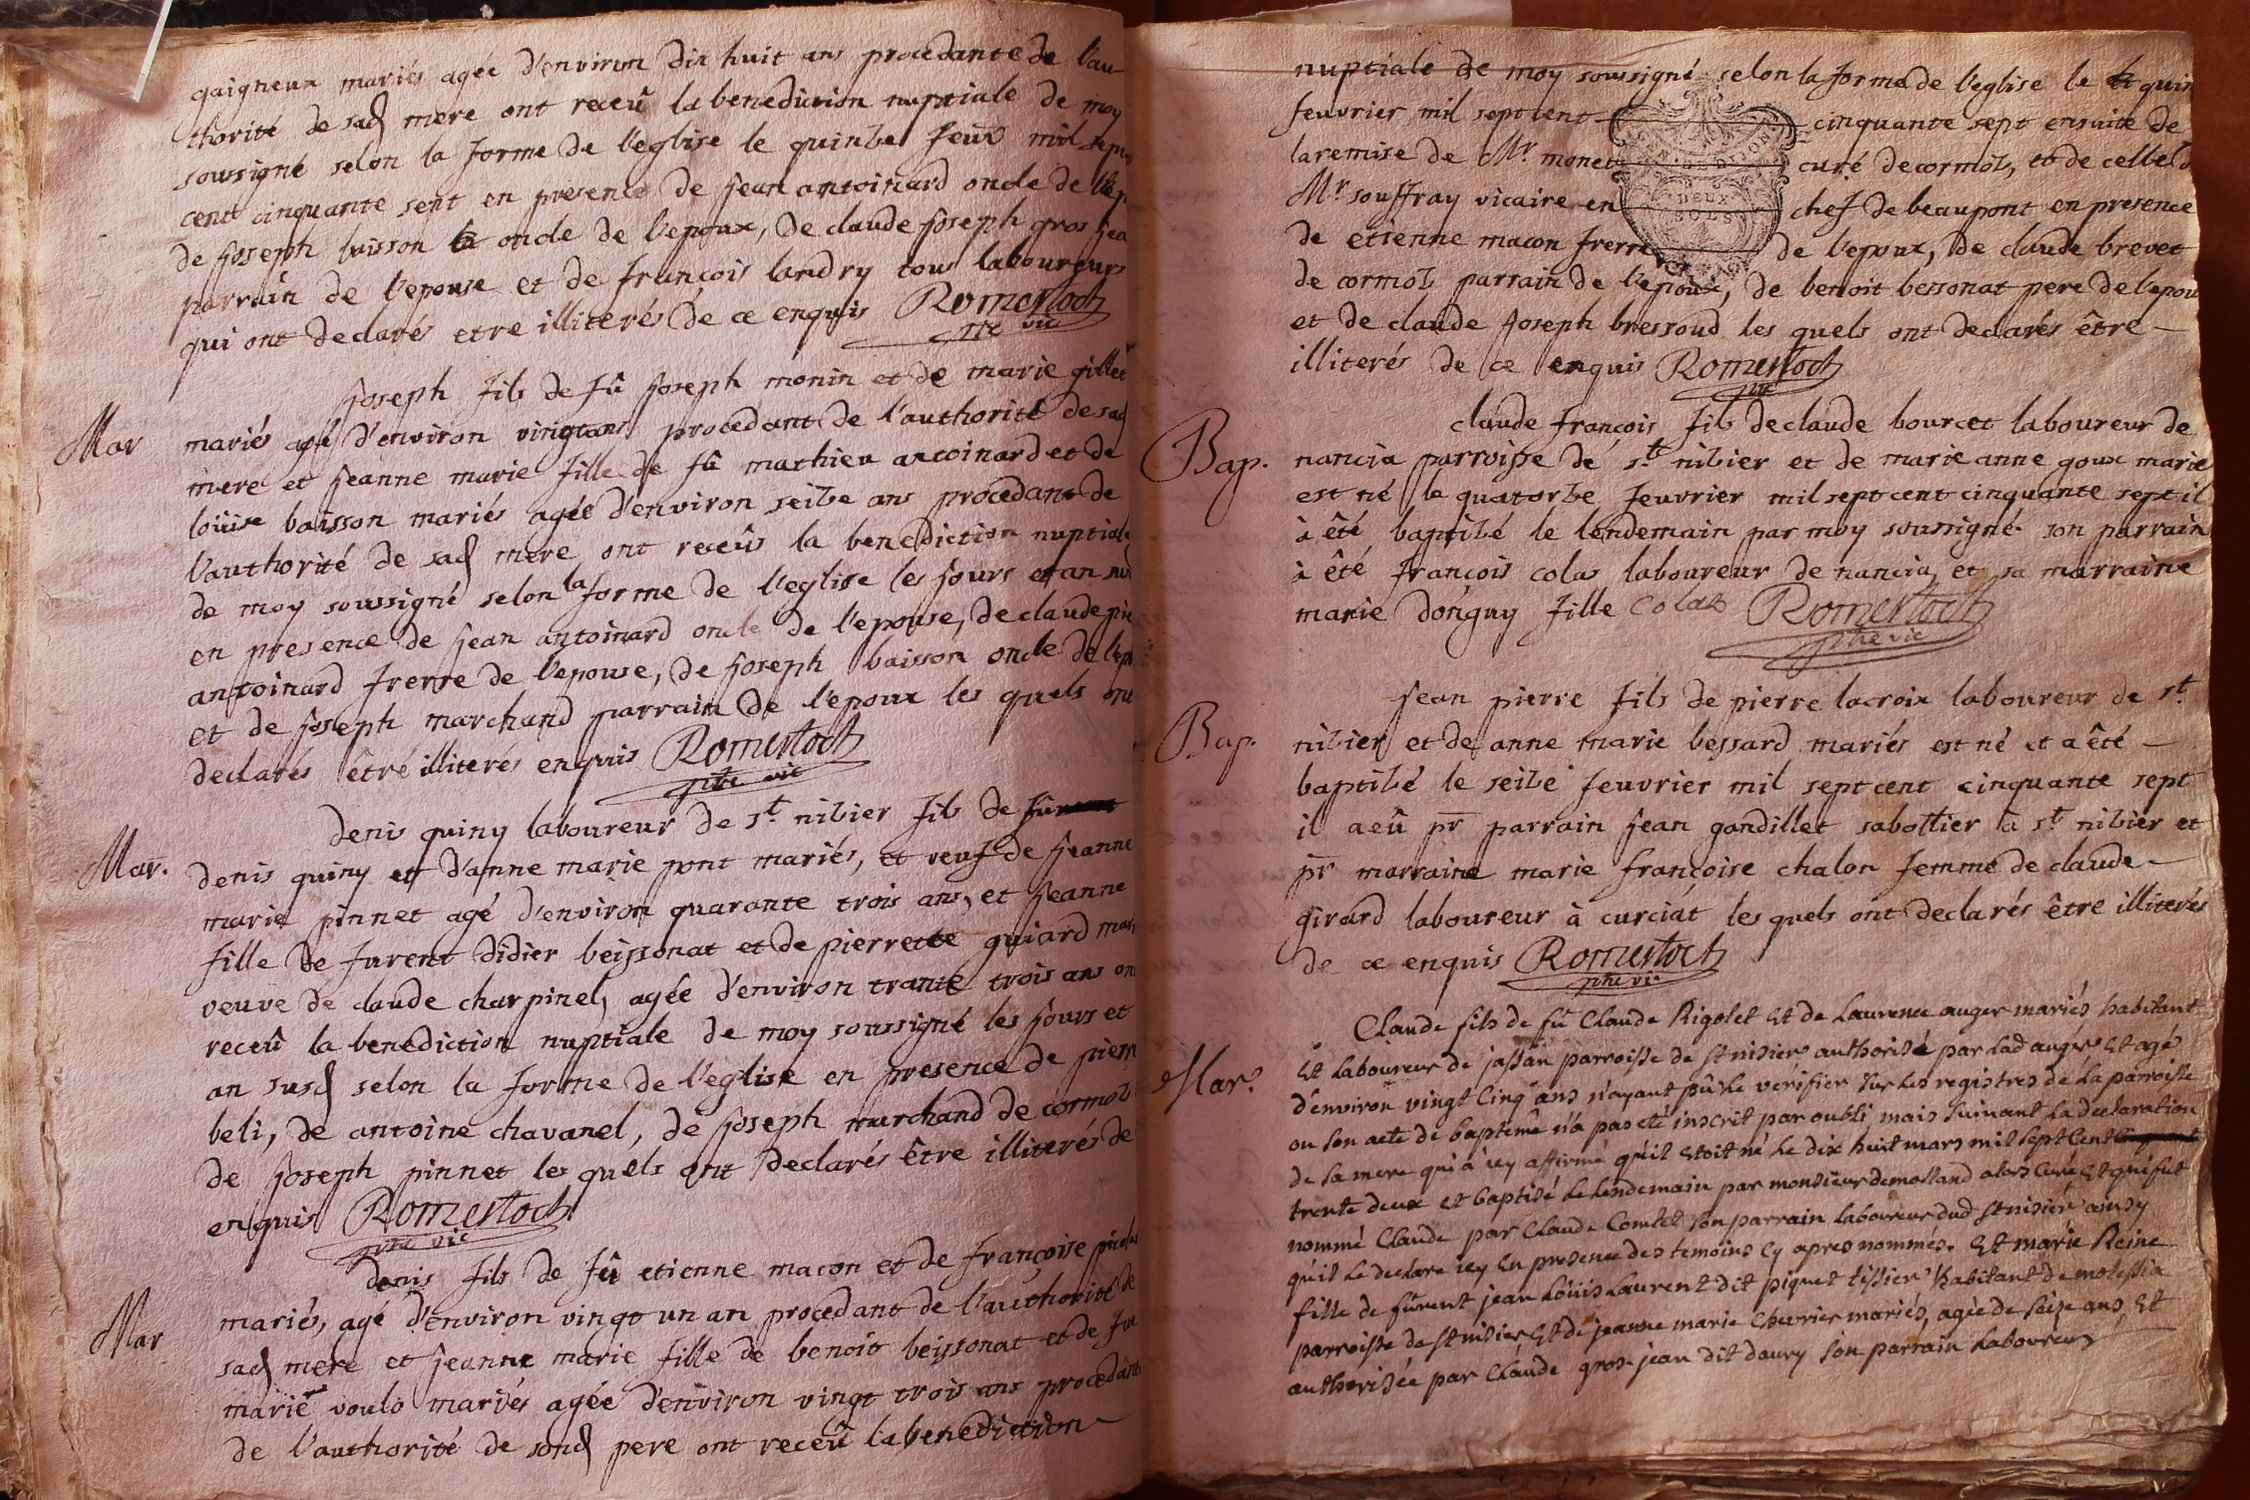 gaigneux mariés agée d'environ dix huit ans procedante de l'au
thorité de sad mere ont receû la benediction nuptiale de moy
sousigné selon la forme de l'eglise le quinze feuv mil sept
cent cinquante sept en presence de jean antoinard oncle de l'ep
de joseph buisson oncle de l'epoux, de claude joseph gros jea
parrain de l'epouse et de francois landry tous laboureurs
qui ont declarés etre illiterés de ce enquis Romestoch
ptre vic
Mar
joseph fils de fû joseph monin et de marie gillet
mariés agé d'environ vingt ans procedant de l'authorité de sad
mere et jeanne marie fille de fû mathieu antoinard et de
loüise baisson mariés agée d'environ seize ans procedant de
l'authorité de sad mere ont receûs la benediction nuptiale
de moy soussigné selon la forme de l'eglise les jours et an sud
en presence de jean antoinard oncle de l'epouse, de claude pie
antoinard frerre de l'epouse, de joseph baisson oncle de l'ep
et de joseph marchand parrain de l'epoux les quels ont
declarés être illiterés enquis Romestoch
ptre vic
Mar.
denis quiny laboureur de st nizier fils de
denis quiny et d'anne marie pont mariés, et veuf de jeanne
marie pinnet agé d'environ quarante trois ans, et jeanne
fille de furent didier beissonat et de pierrette guiard mar
veuve de claude charpinel, agée d'environ trante trois ans on
receû la benediction nuptiale de moy soussigné les jours et
an susd selon la forme de l'eglise en presence de pierr
beli, de antoine chavanel, de joseph marchand de cormoz
de joseph pinnet les quels ont declarés être illiterés de
enquis Romestoch
ptre vic
Mar
denis fils de fû etienne macon et de françoise
mariés, agé d'environ vingt un an procedant de l'authorité de
sad mere et jeanne marie fille de benoit beissonat et de fu
marie voulo mariés agée d'environ vingt trois ans procedant
de l'authorité de sond pere ont receû la benediction
nuptiale de moy soussigné selon la forme de l'eglise le quin
feuvrier mil sept cent cinquante sept ensuite de
la remise de Mr. monet curé de cormoz, et de celle d
Mr souffray vicaire en chef de beaupont en presence
de etienne macon frerre de l'epoux, de claude brevet
de cormoz parrain de l'epoux, de benoit bessonat pere de l'epou
et de claude joseph bressoud les quels ont declarés être
illiterés de ce enquis Romestoch
ptre
DEUX
SOLS
Bap.
claude francois fils de claude bourcet laboureur de
nancia parroisse de st nizier et de marie anne goux marie
est né le quatorze feuvrier mil sept cent cinquante sept il
à été baptizé le lendemain par moy soussigné son parrain
à été francois colas laboureur de nancia, et sa marraine
marie donguy fille Colas Romestoch
ptre vic
Bap.
jean pierre fils de pierre lacroix laboureur de st
nizier et de anne marie bessard mariés est né et a été
baptizé le seize feuvrier mil sept cent cinquante sept
il a eû pr parrain jean gandillet sabottier à st nizier et
pr marraine marie françoise chalon femme de claude
girard laboureur à curciat les quels ont declarés être illiterés
de ce enquis Romestoch
ptre vic
Mar.
Claude fils de fû Claude Rigolet Et de Laurence auger mariés habitant
Et laboureur de jassan parroisse de st nisier authorisé par lad auger Et agé
d'environ vingt cinq ans n'ayant pû le verifier sur les registres de la parroisse
ou son acte de baptême n'a pas eté inscrit par oubli mais suivant la declaration
de sa mere qui a icy affirmé qu'il etoit né le dix huit mars mil sept cent
trente deux et baptisé le lendemain par monsieur demolland alors curé et qui fut
nommé Claude par Claude Comtet son parrain laboureur dud st nisier ainsy
qu'il le declare icy En presence des temoins cy apres nommés. Et marie Reine
fille de fûrent jean Loüis Laurent dit piquet tissier habitant de molessia
parroisse de st nisier Et de jeanne marie Chevrier mariés, agée de seize ans Et
authorisée par Claude gros jean dit daury son parrain laboureur